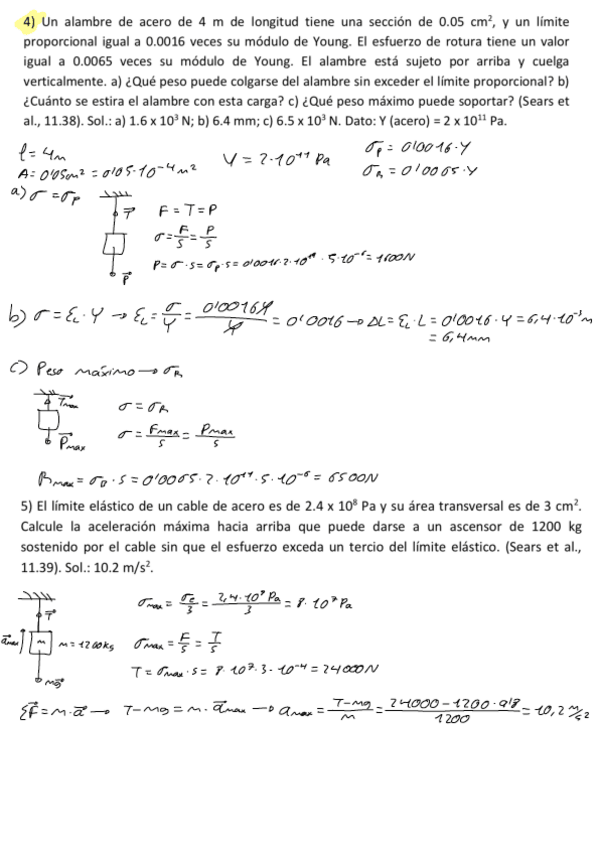 4) Un alambre de acero de 4 m de longitud tiene una sección de 0.05 cm², y un límite
proporcional igual a 0.0016 veces su módulo de Young. El esfuerzo de rotura tiene un valor
igual a 0.0065 veces su módulo de Young. El alambre está sujeto por arriba y cuelga
verticalmente. a) ¿Qué peso puede colgarse del alambre sin exceder el límite proporcional? b)
¿Cuánto se estira el alambre con esta carga? c) ¿Qué peso máximo puede soportar? (Sears et
al., 11.38). Sol.: a) 1.6 x 10³ N; b) 6.4 mm; c) 6.5 x 10³ N. Dato: Y (acero) = 2 x 10¹¹ Pa.
l = 4m
A = 0'05cm² = 0'05·10⁻⁴m²
Y = 2·10¹¹ Pa
σp = 0'0016·Y
σR = 0'0065·Y
a) σ = σp
T
P
F = T = P
σ = F/S = P/S
P = σ·S = σp·S = 0'0016·2·10¹¹·5·10⁻⁶ = 1600N
b) σ = εL·Y → εL = σ/Y = 0'0016Y/Y = 0'0016 → ΔL = εL·L = 0'0016·4 = 6,4·10⁻³m
= 6,4mm
c) Peso máximo → σR
Tmax
Pmax
σ = σR
σ = Fmax/S = Pmax/S
Pmax = σR·S = 0'0065·2·10¹¹·5·10⁻⁶ = 6500N
5) El límite elástico de un cable de acero es de 2.4 x 10⁸ Pa y su área transversal es de 3 cm².
Calcule la aceleración máxima hacia arriba que puede darse a un ascensor de 1200 kg
sostenido por el cable sin que el esfuerzo exceda un tercio del límite elástico. (Sears et al.,
11.39). Sol.: 10.2 m/s².
T
amax
m
m = 1200kg
mg
σmax = σe/3 = 2,4·10⁸ Pa/3 = 8·10⁷ Pa
σmax = F/S = T/S
T = σmax·S = 8·10⁷·3·10⁻⁴ = 24000N
ΣF = m·a → T-mg = m·amax → amax = T-mg/m = 24000-1200·9'8/1200 = 10,2 m/s²